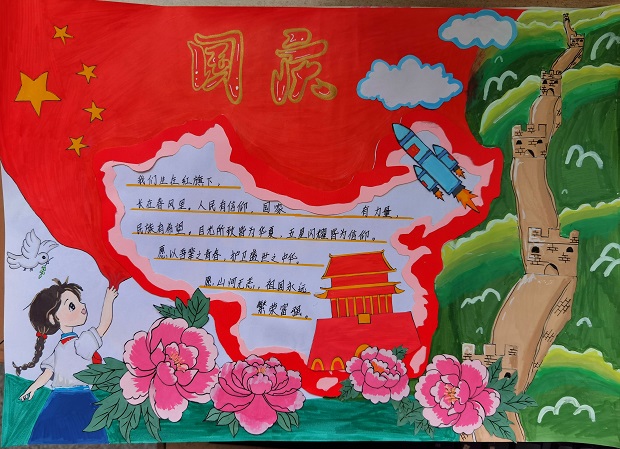 国庆
我们生在红旗下，
长在春风里，人民有信仰 国家 有力量，
民族有希望，目光所致皆为华夏，五星闪耀皆为信仰。
愿以吾辈之青春，护卫盛世之中华。
愿山河无恙，祖国永远
繁荣富强。